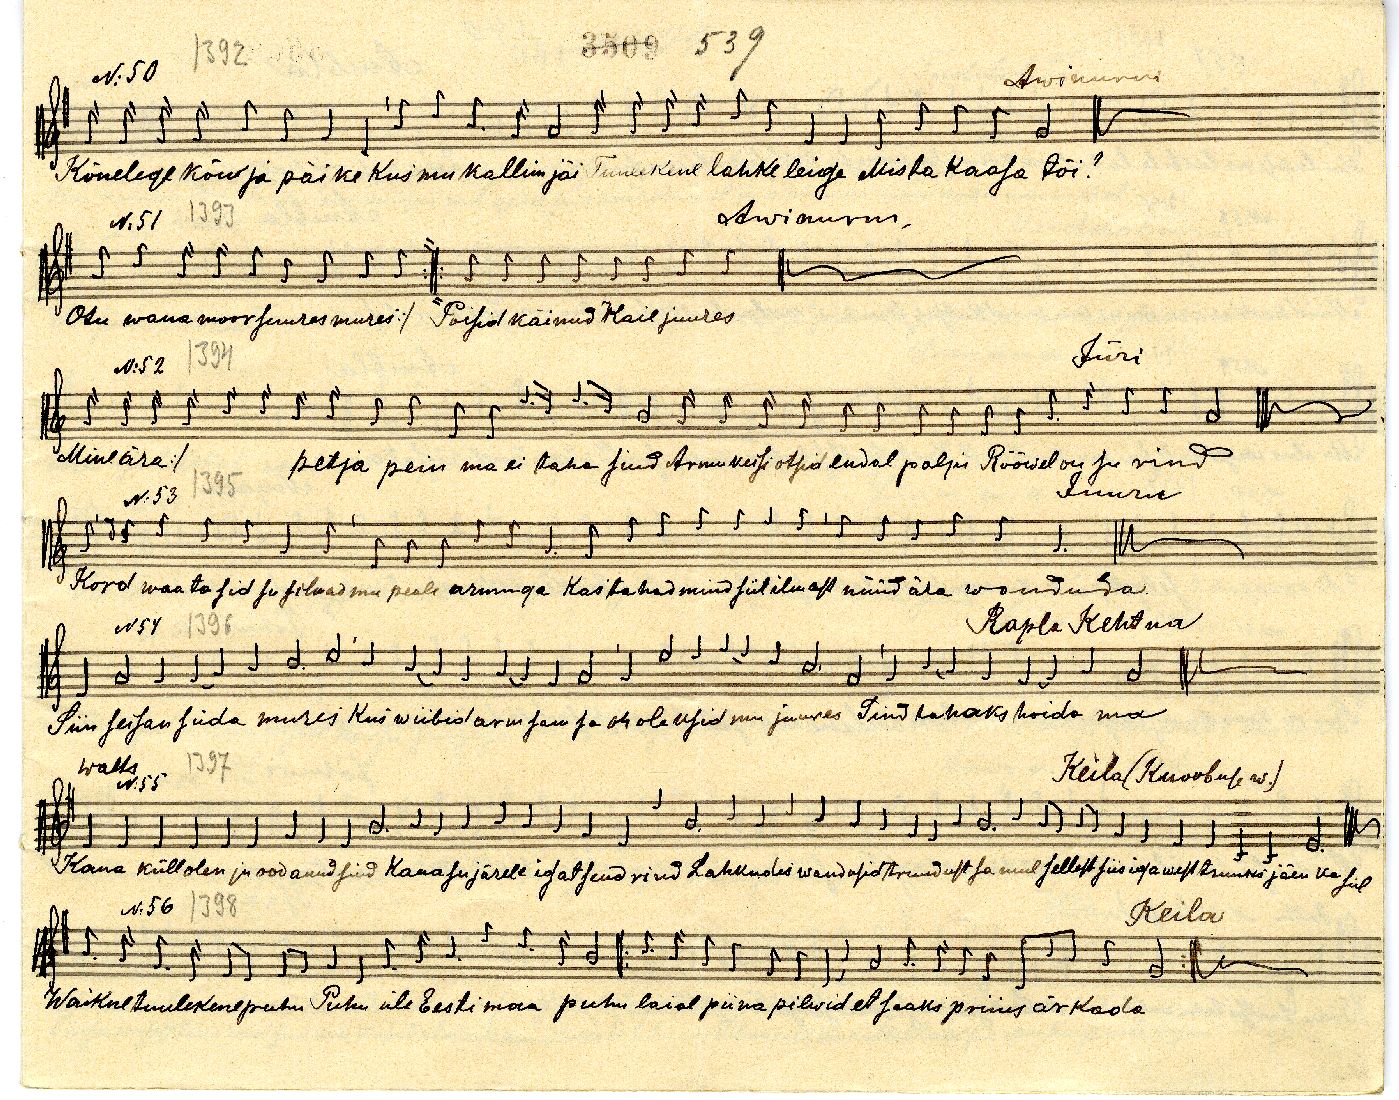 1392 3509 539
N: 50 Awinurmi
Kõnelege kõiw ja päike kus mu kallim jäi Tuulekene lahke leige Mista kaasa tõi?
N: 51 1393 Awinurmi,
Otu wana moor suures mures :/ Poisid käinud Kail juures
N: 52 1394 Jüri
Mine ära :/ petja pein ma ei taha sind Armukeisi otsid endal palju Rööwel on su rind
N: 53 1395 Juuru
Kord waatasid su silmad mu peale armuga Kas tahad mind siit ilmast nüüd ära
N 54 1396 Rapla Kehtna
Siin seisan süda mures Kus wiibid arm sa oh oleksid mu juures Sind tahaks hoida ma
walts
N: 55 1397 Keila (Knoobuse w.)
Kaua küll olen ju oodanud sind Kaua su järele igatsend rind Lahkudes wandusid truudust sa mul sellest siis igawest truuks jäen ka sul
N: 56 1398 Keila
Waikne tuulekene puhu Puhu üle Eestimaa puhu laial piina pilwid et saaks priius ärkada